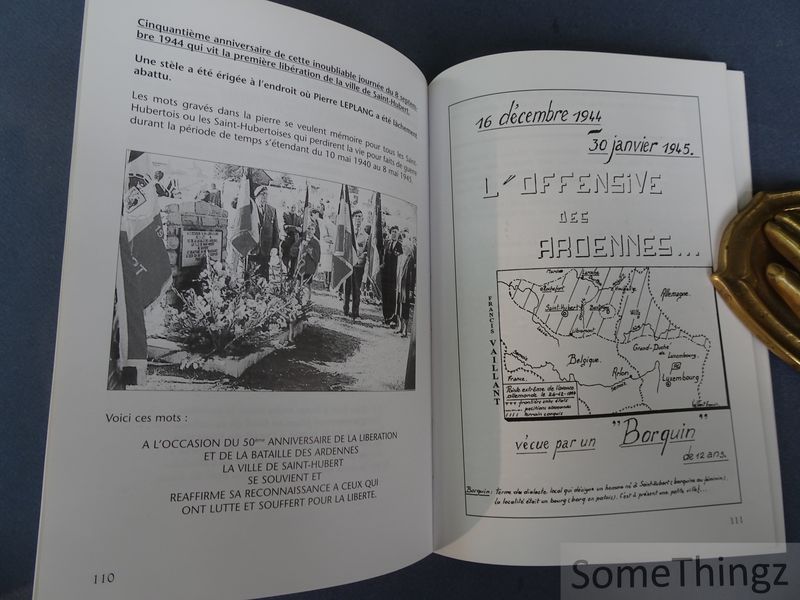 Cinquantième anniversaire de cette inoubliable journée du 8 septem-
bre 1944 qui vit la première libération de la ville de Saint-Hubert.
Une stèle a été érigée à l'endroit où Pierre LEPLANG a été lâchement
abattu.
Les mots gravés dans la pierre se veulent mémoire pour tous les Saint-
Hubertois ou les Saint-Hubertoises qui perdirent la vie pour faits de guerre
durant la période de temps s'étendant du 10 mai 1940 au 8 mai 1945.
Voici ces mots :
A L'OCCASION DU 50ème ANNIVERSAIRE DE LA LIBERATION
ET DE LA BATAILLE DES ARDENNES
LA VILLE DE SAINT-HUBERT
SE SOUVIENT ET
REAFFIRME SA RECONNAISSANCE A CEUX QUI
ONT LUTTE ET SOUFFERT POUR LA LIBERTE.
110
16 décembre 1944
30 janvier 1945.
L'OFFENSIVE
DES
ARDENNES...
FRANCIS VAILLANT
Rochefort
Saint-Hubert
Allemagne
Belgique
Grand-Duché
de Luxembourg
Arlon
Luxembourg
France
Pointe extrême de l'avance
allemande le
frontière entre états
terrain conquis
vécue par un "Borquin"
de 12 ans.
Borquin : Terme du dialecte local qui désigne un homme né à Saint-Hubert (borquine au féminin).
La localité était un bourg (borg en patois). C'est à présent une petite ville!...
111
SomeThingz